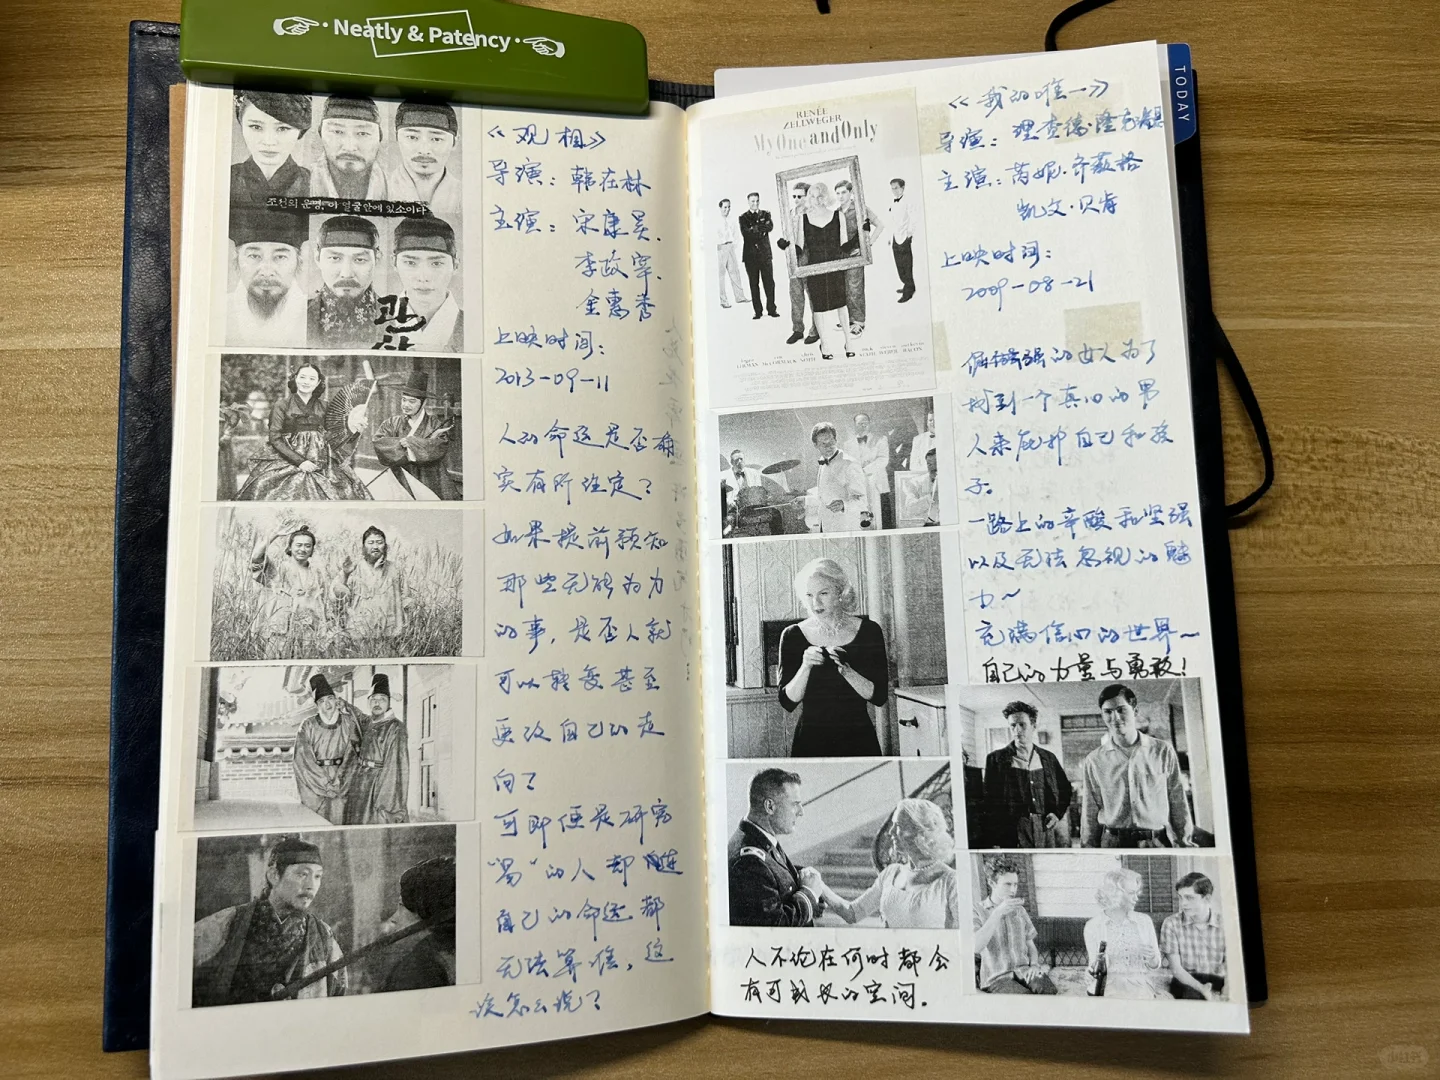 Neatly & Patency
TODAY
조선의 운명, 이 얼굴안에 있소이다
관상
《观相》
导演：韩在林
主演：宋康昊、
李政宰、
金惠秀
上映时间：
2013-09-11
人的命运是否确
实有所注定？
如果提前预知
那些无能为力
的事，是否人就
可以转变甚至
更改自己的走
向？
可即便是研究
“易”的人却连
自己的命运都
无法算准，这
该怎么说？
RENÉE
ZELLWEGER
My One and Only
《我的唯一》
导演：理查德·隆克瑞恩
主演：芮妮·齐薇格
凯文·贝肯
上映时间：
2009-08-21
倔强的女人为了
找到一个真心的男
人来庇护自己和孩
子。
一路上的辛酸和坚强
以及无法忽视的魅
力~
充满信心的世界~
自己的力量与勇敢！
人不论在何时都会
有可成长的空间。
小红书